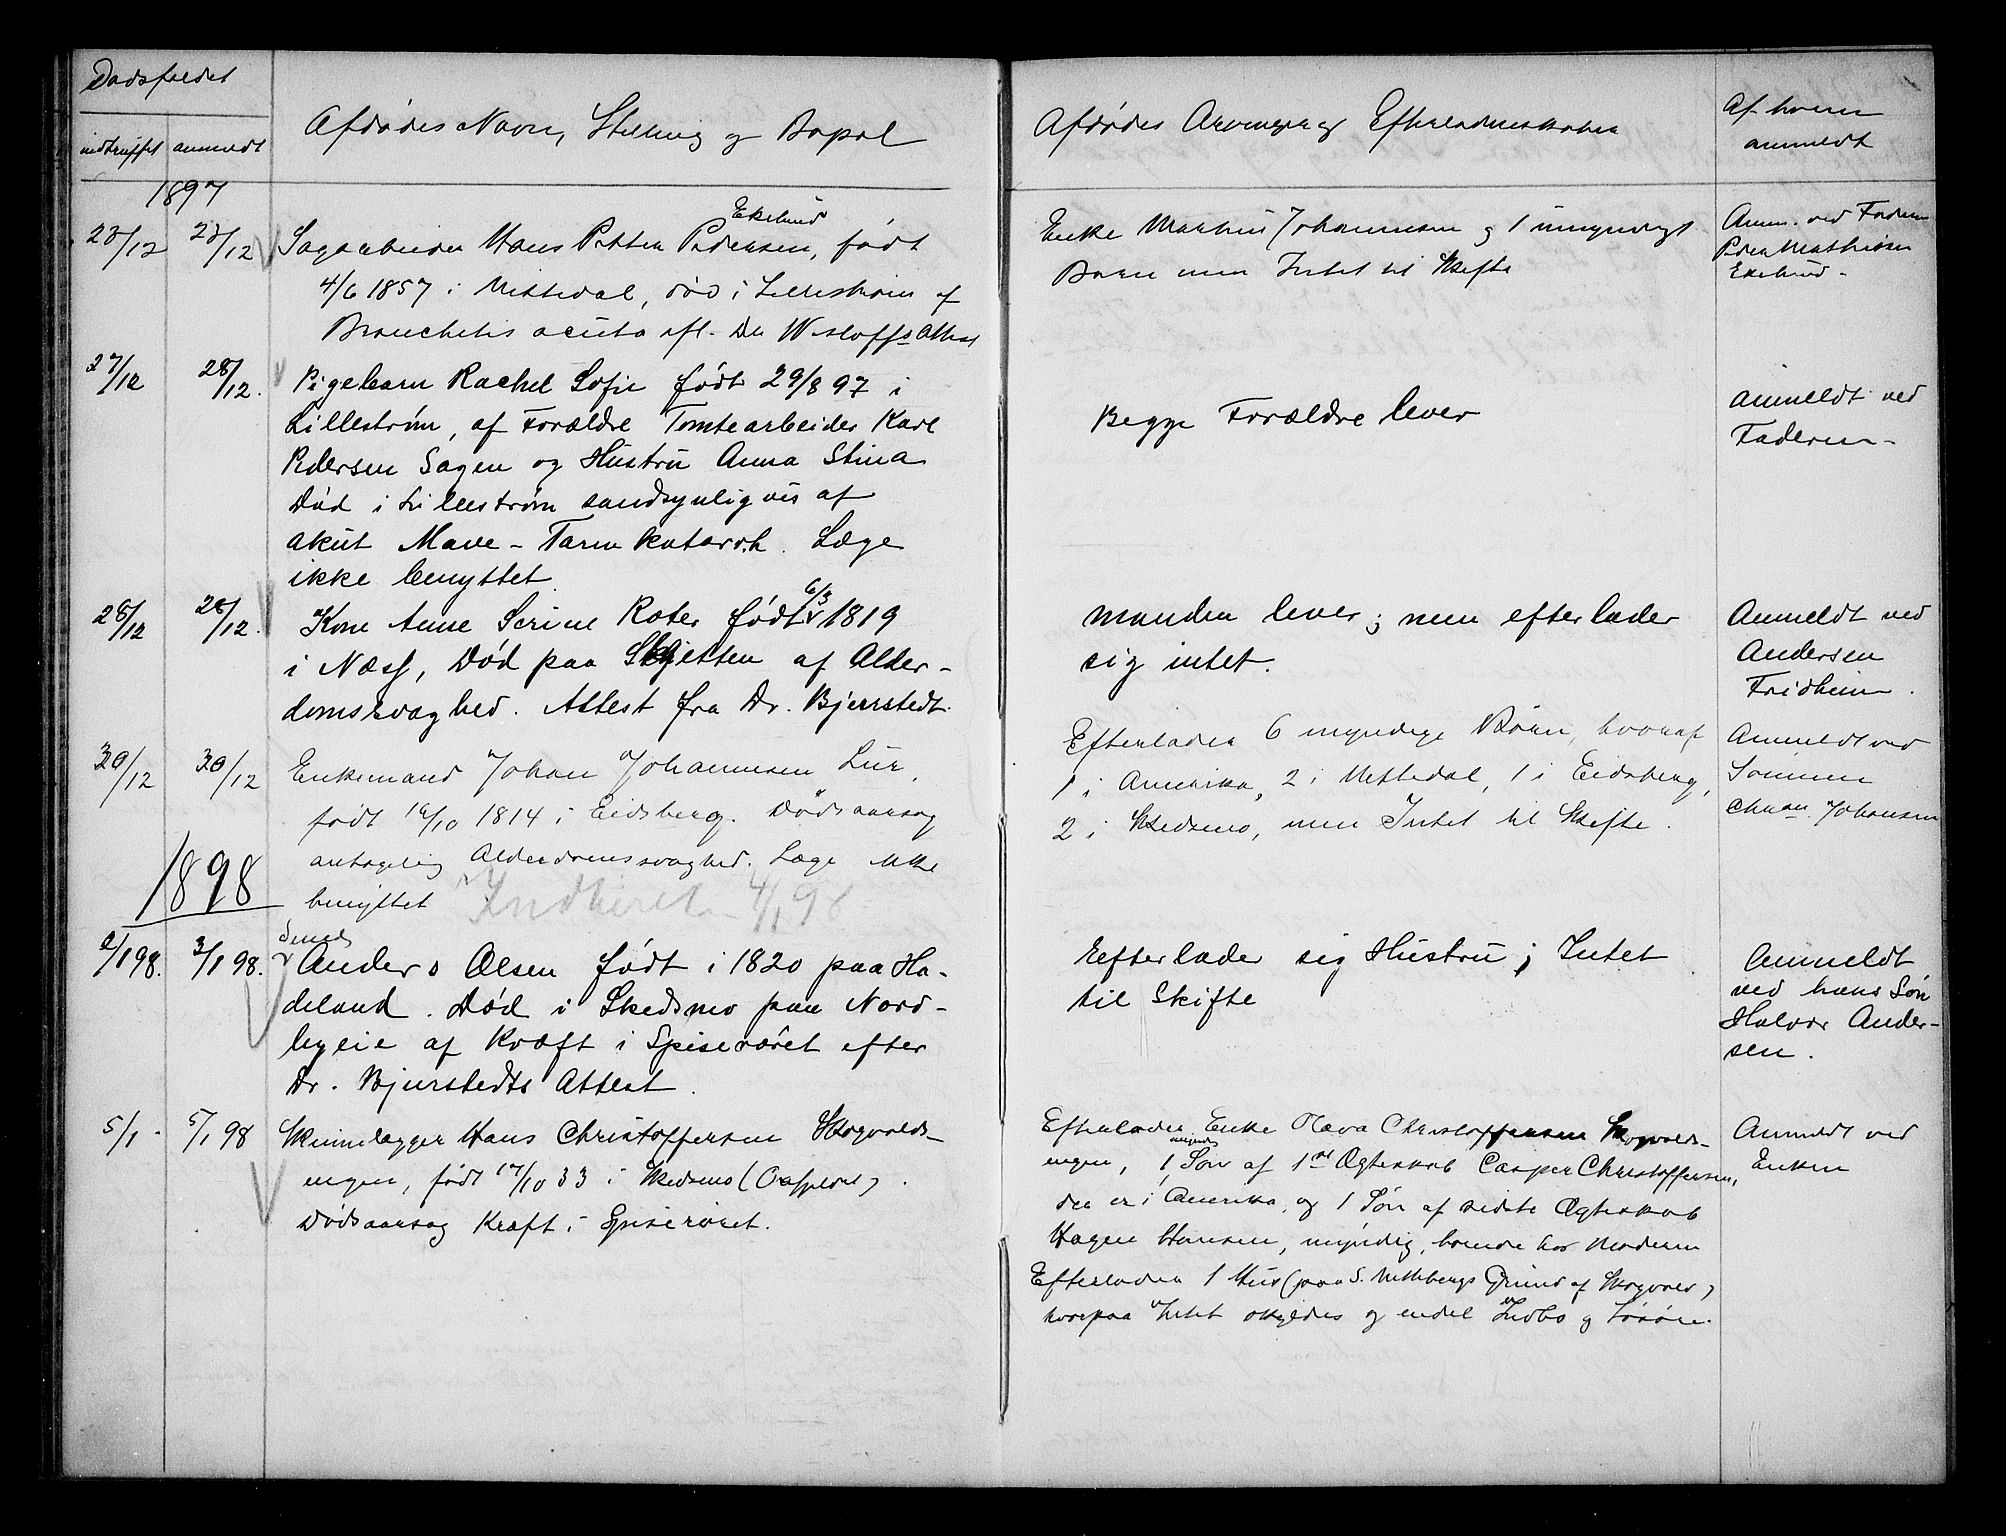 Dødsfaldet
indtruffet anmeldt
Afdødes Navn, Stilling og Bopæl
Afdødes Arvinger og Efterladenskaber
Af hvem
anmeldt
1897
23/12 23/12
Ekelund
Sagarbeider Hans Petter Pedersen, født
4/6 1857 i Nittedal, død i Lillestrøm af
Bronchitis acuta efl. Dr Wisløffs Attest
Enke Mathis Johannesen og 1 umyndigt
Barn men Intet til Skifte
Anm. ved Faderen
Peder Mathisen
Ekelund -
27/12 28/12.
Pigebarn Rachel Sofie født 29/8 97 i
Lillestrøm, af Forældre Tomtearbeider Karl
Pedersen Sagen og Hustru Anna Stina
Død i Lillestrøm sandsynligvis af
akut Mave-Tarmkatarrh. Læge
ikke benyttet
Begge Forældre lever
Anmeldt ved
Faderen -
28/12 28/12.
6/3
Kone Anne Serine Roter født v 1819
i Næss, Død paa Skjetten af Alder-
domssvaghed. Attest fra Dr. Bjerrstedt.
Manden lever; men efterlader
sig intet.
Anmeldt ved
Andersen
Fridheim.
30/12 30/12
Enkemand Johan Johannesen Lur,
født 16/10 1814 i Eidsberg. Dødsaarsag
antagelig Alderdomssvaghed. Læge ikke
benyttet Indberet 4/1 98
Efterlader 6 myndige Børn, hvoraf
1 i Amerika, 2 i Nittedal, 1 i Eidsberg,
2 i Skedsmo, men Intet til Skifte.
Anmeldt ved
Sønnen
Chran. Johansen
1898
2/1 98. 3/1 98.
Smed
Anders Olsen født i 1820 paa Ha-
deland. Død i Skedsmo paa Nord-
byeie af Kræft i Spiserøret efter
Dr. Bjerstedts Attest.
Efterlader sig Hustru; Intet
til Skifte
Anmeldt
ved hans Søn
Halvor Ander-
sen.
5/1 - 5/1 98
Minnelægger Hans Christoffersen Skogvolds-
engen, født 17/10 33 i Skedsmo
Dødsaarsag Kræft i Spiserøret.
Efterlader Enke Olava Christoffersen Skogvolds-
myndig
engen, 1 Søn af 1ste Ægteskab Casper Christoffersen,
der er i Amerika, og 1 Søn af sidste Ægteskab
Hagen Hansen, myndig, boende hos Moderen
Efterlader 1 Hus (paa S. Nittebergs Grund af Skogvold)
hvorpaa Intet skyldes og endel Indbo og Løsøre.
Anmeldt ved
Enken